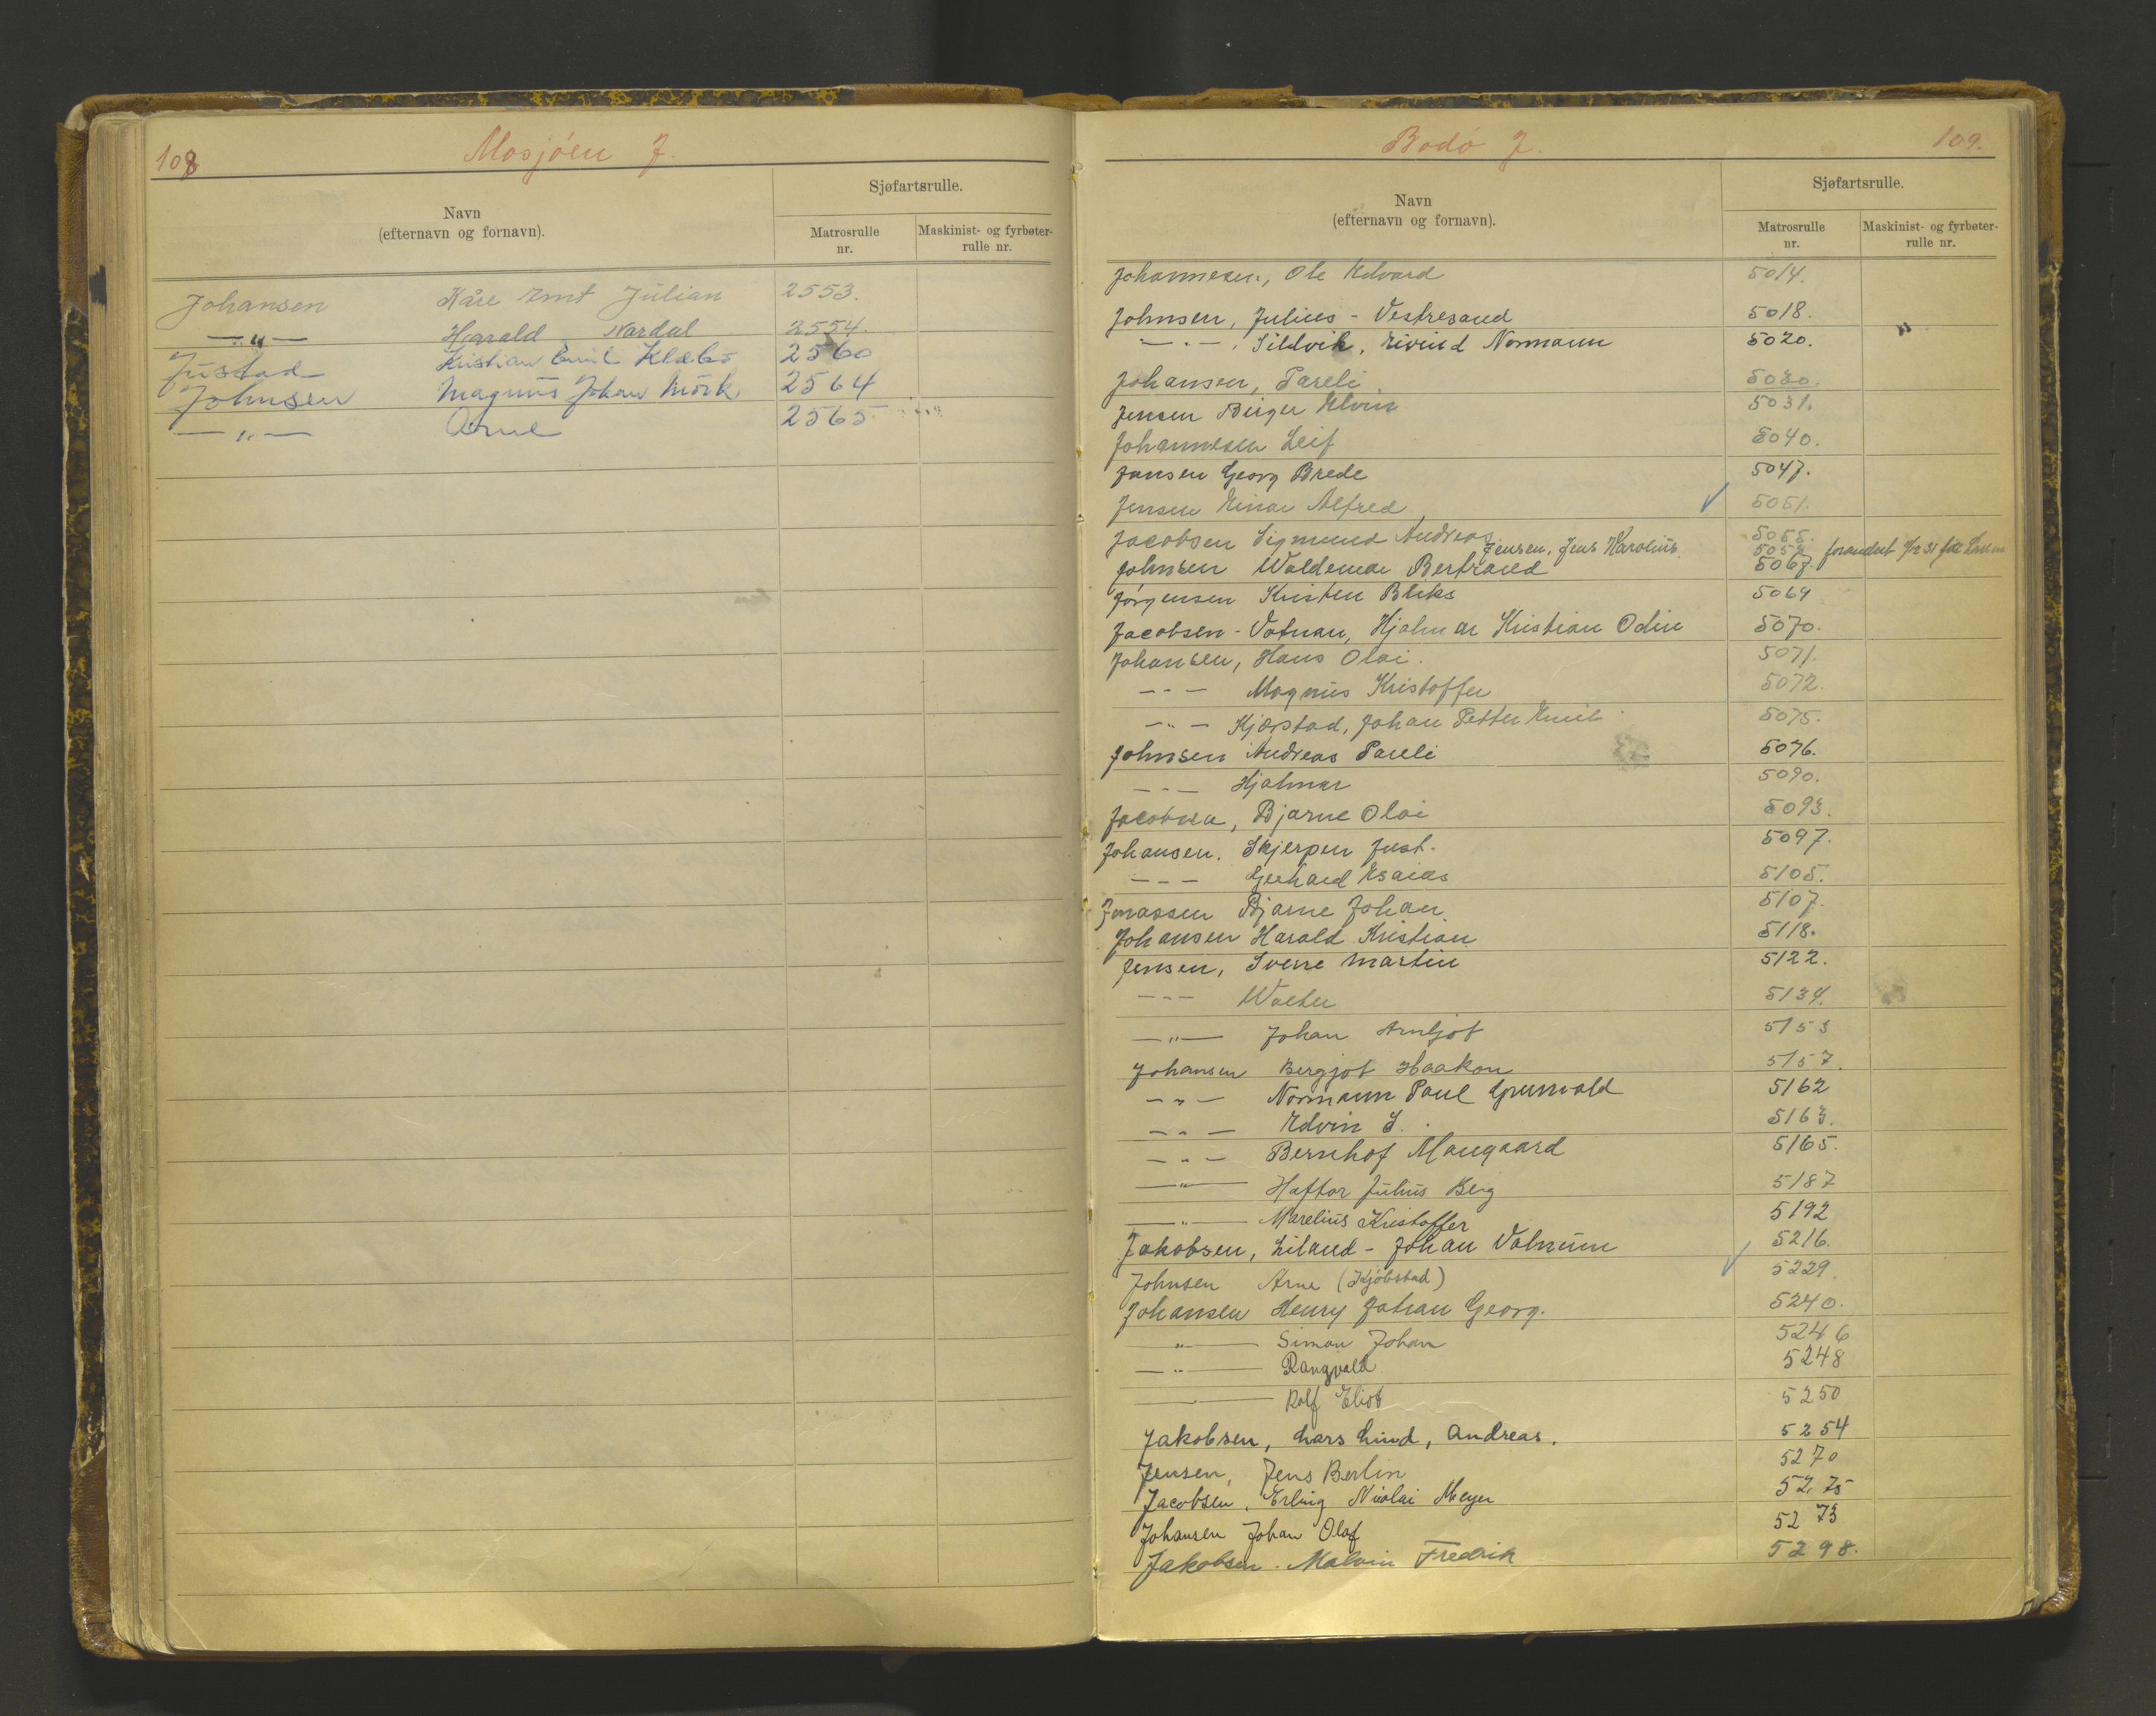 108
Mosjöen J.
Sjøfartsrulle.
Navn
(efternavn og fornavn).
Matrosrulle
nr.
Maskinist- og fyrbøter-
rulle nr.
Johansen Kåre Ernt Julian 2553.
—"— Harald Nardal 2554.
Justad Kristian Emil Klæbo 2560
Johnsen Magnus Johan Mörk 2564
—"— Arne 2565
Bodö J.
109.
Sjøfartsrulle.
Navn
(efternavn og fornavn).
Matrosrulle
nr.
Maskinist- og fyrbøter-
rulle nr.
Johannesen, Ole Edvard 5014.
Johnsen, Julius - Vestresand 5018.
—"— Sildvik, Eivind Normann 5020. "
Johansen, Pareli. 5030.
Jensen Birger Elvin 5031.
Johannesen Leif 5040.
Jansen Georg Brede 5047.
Jensen Einar Alfred ✓ 5051.
Jacobsen Sigmund Andreas 5055.
Jensen, Jens Karolius. 5058 forandret til
Johnsen Waldemar Bertrand 5067.
Jörgensen Kristen Bliks 5069
Jacobsen - Vatnan, Hjalmar Kristian Odin 5070.
Johansen, Hans Olai. 5071.
—"— Magnus Kristoffer 5072.
—"— Kjøpstad, Johan Petter Emil 5075.
Johnsen Andreas Pareli 5076.
—"— Hjalmar 5090.
Jacobsen, Bjarne Olai 5093.
Johansen. Skjerpen Just. 5097.
—"— Gerhard Esaias 5105.
Jonassen Bjarne Johan 5107.
Johansen Harald Kristian 5118.
Jensen, Sverre Martin 5122.
—"— Walter 5134.
—"— Johan Arnljot 5153
Johansen Bergjot Haakon 5157.
—"— Normann Paul Grunvald 5162
—"— Edvin S. 5163.
—"— Bernhof Maugaard 5165.
—"— Haftor Julius Berg 5187
—"— Marelius Kristoffer 5192
Jakobsen, Liland - Johan Volnum 5216.
Johnsen Arne (Kjöbstad) ✓ 5229.
Johansen Henry Johan Georg. 5240.
—"— Simon Johan 5246
—"— Rangvald 5248
—"— Rolf Eliot 5250
Jakobsen, Lars Lind, Andreas. 5254
Jensen, Jens Berlin 5270
Jacobsen, Erling Nicolai Meyer 5275
Johansen Johan Olaf 5273
Jakobsen. Malvin Fredrik 5298.